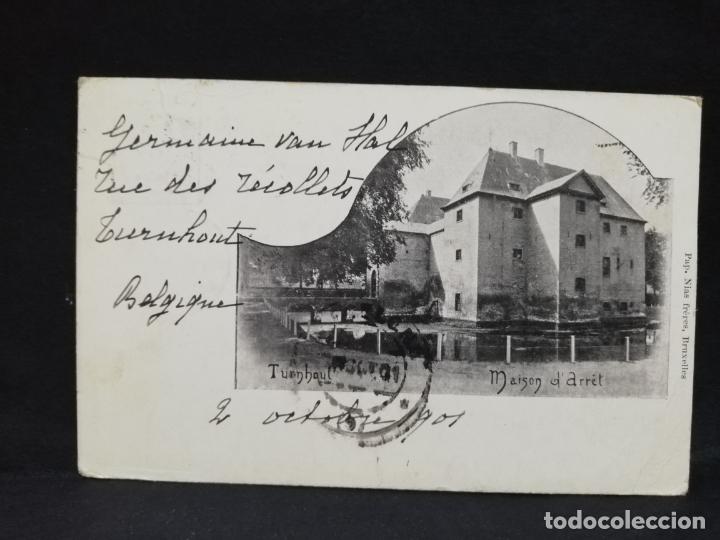 Germaine van Hal
rue des récollets
Turnhout
Belgique
Turnhout
Maison d'Arrêt
2 octobre 1901
Pap. Nias frères, Bruxelles
todocoleccion.net